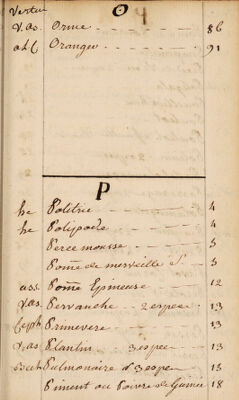 Vertu O
v.as. Orme 86
Oranger 91
P
he Politric 4
he Polipode 4
Percemousse 3
Pome de merveille 3
ass Pome Epineuse 12
v.as. Pervanche 2 espec 13
Ceph Primevere 13
v.as Plantin 3 espec 13
Pulmonaire d 3 espec 15
Piment ou Poivre de Guinée 18